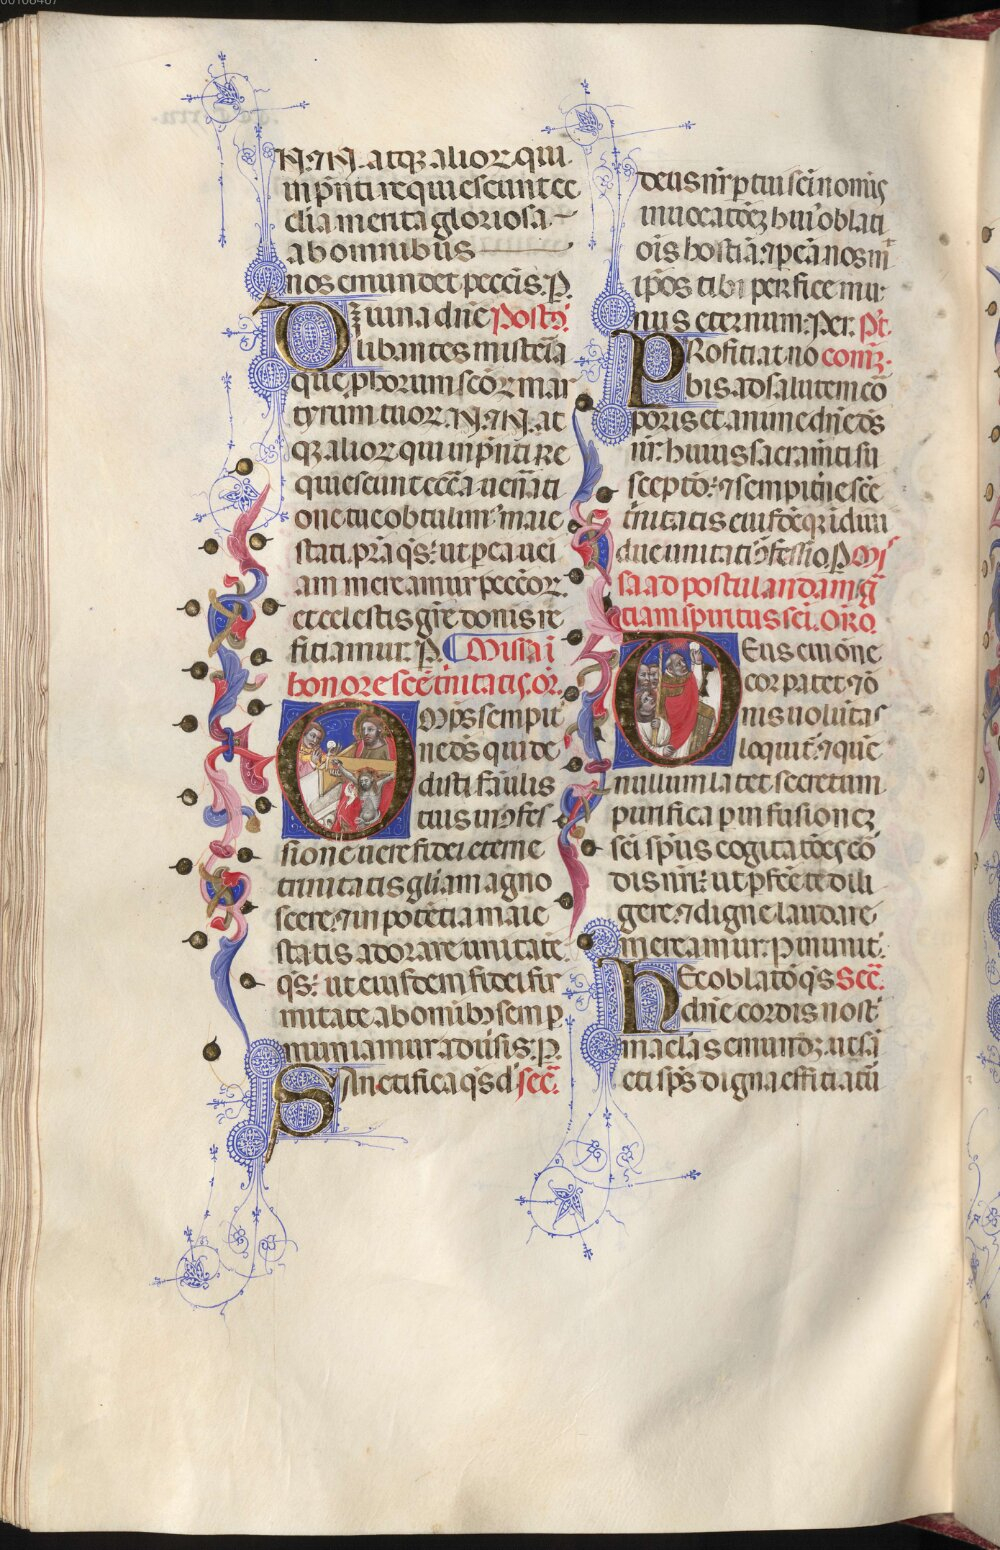 N. ⁊ N. atqꝫ alioꝝ qui
in p̄nti requiescunt ec
clīa merita gloriosa
ab omnibus
nos emundet pecc̄is. P.
Diuina dn̄e Postc̄o.
libantes misteria
que p̱ horum sc̄oꝝ mar
tyrum tuoꝝ. N. ⁊ N. at
qꝫ alioꝝ qui in p̄nti re
quiescunt ecc̄a uen̄ati
one tue obtulim᷒ maie
stati. p̄ca q̄s. ut p̱ ea uei
am mereamur pecc̄oꝝ.
et celestis gr̄e donis re
ficiamur. P. Missa ī
honore sc̄e t̄nitatis. or̄.
Om̄ps sempit̄
ne ds̄ qui de
disti famulis
tuis in ꝯfes
sione uere fidei eterne
trinitatis gl̄iam agno
scere. ⁊ in potētia maie
statis adorare unitatē.
q̄s. ut eiusdem fidei fir
mitate ab omibꝫ semp̱
muniamur aduersis. P.
Sanctifica q̄s d̄ sec̄.
deus nr̄ p̱ tui sc̄i nomis
inuocatōeꝫ hui᷒ oblati
ois hostiā. ⁊ p̱ eā nosm̄
ip̄os tibi perfice mu
nus eternum. Per. Pt.
Proficiat no comꝫ.
bis ad salutem co
poris et anime dn̄e ds̄
nr̄. huius sacram̄ti su
scepto. ⁊ sempit̄ne sc̄e
t̄nitatis eiusdēqꝫ idiui
due unitatis ꝯfessio. P. Mi
sa ad postulandam ḡ
ciam spiritus sc̄i. Or̄o.
Deus cui om̄e
cor patet. ⁊ ō
nis uoluntas
loquit᷒. ⁊ quē
nullum latet secretum
purifica p̱ infusioneꝫ
sc̄i sp̄us cogitatōes co
dis nr̄i. ut p̱fc̄e te dili
gere. ⁊ digne laudare
mereamur. P. in unit.
Hec oblatō q̄s Sec̄.
dn̄e cordis nost
maclās emundꝫ. ut sā
cti sp̄s digna efficiat